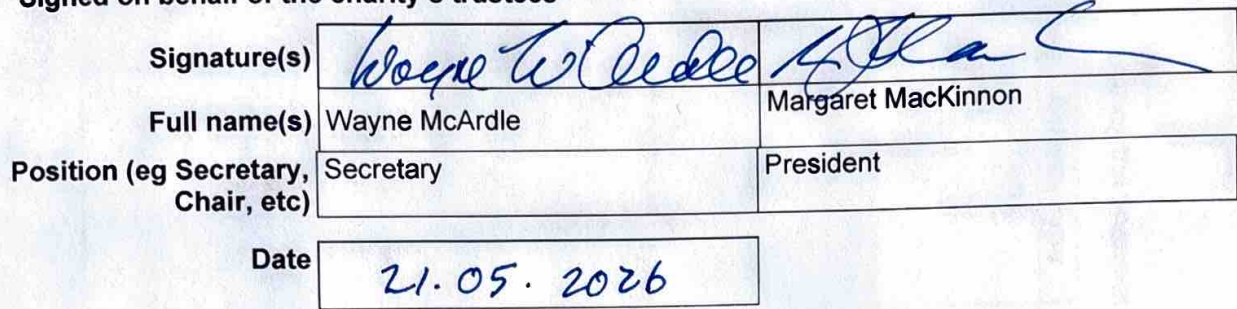 Signed on behalf of the charity's trustees
Signature(s) Wayne McArdle
Full name(s) Wayne McArdle Margaret MacKinnon
Position (eg Secretary, Secretary President
Chair, etc)
Date 21.05.2026